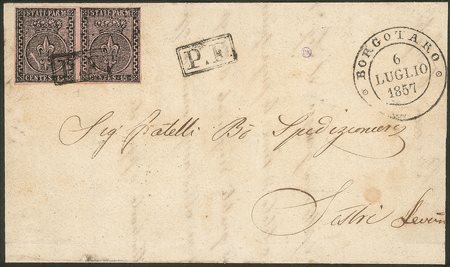 STATI PARM. STATI PARM.
CENTES. 15 CENTES. 15
P.F.
BORGOTARO
6
LUGLIO
1857
Sig. Fratelli Bò Spedizionieri
Sestri Levan